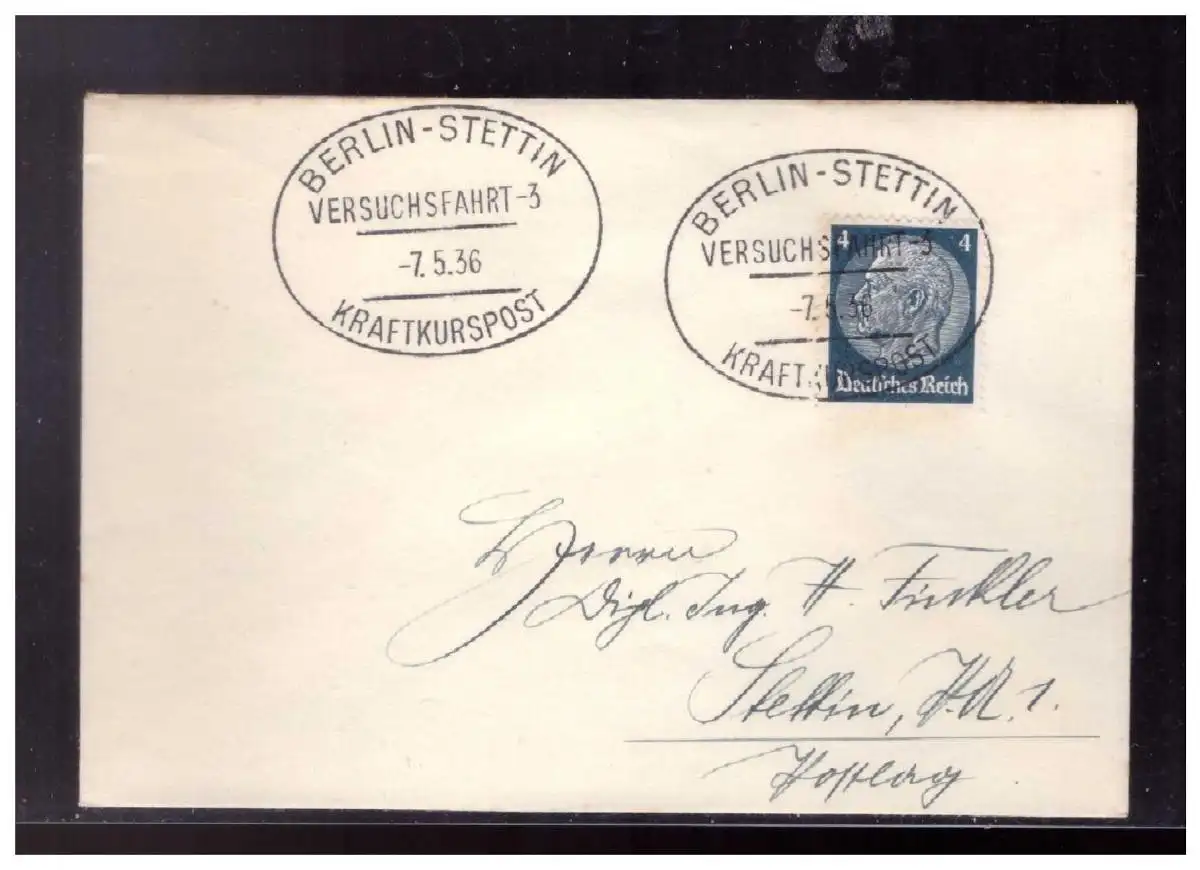 BERLIN-STETTIN
VERSUCHSFAHRT-3
-7.5.36
KRAFTKURSPOST
BERLIN-STETTIN
VERSUCHSFAHRT-3
-7.5.36
KRAFTKURSPOST
4 4
Deutsches Reich
Herrn
Dipl. Ing. H. Finkler
Stettin, P.A. 1.
Postlag